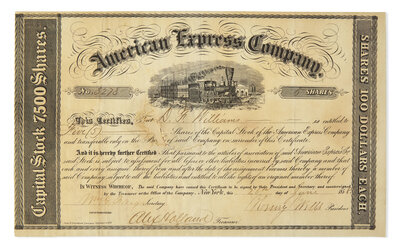 American Express Company.
Capital Stock 7500 Shares.
SHARES 100 DOLLARS EACH.
No.
SHARES
This Certifies, That D. N. Williams is entitled to
Five (5) Shares of the Capital Stock of the American Express Company
and transferable only in the of said Company on surrender of this Certificate.
And it is hereby further Certified That pursuant to the articles of association of said American Express Co.
said Stock is subject to
and each and every assignee thereof from and after the date of the assignment becomes thereby a member of
said Company, subject to all the liabilities and entitled to all the rights of an original member thereof.
In Witness Whereof, The said Company have caused this Certificate to be signed by their President and Secretary and countersigned
by the Treasurer at the Office of the Company, New York, this day of June
Secretary
Henry Wells President
Alex Holland Treasurer